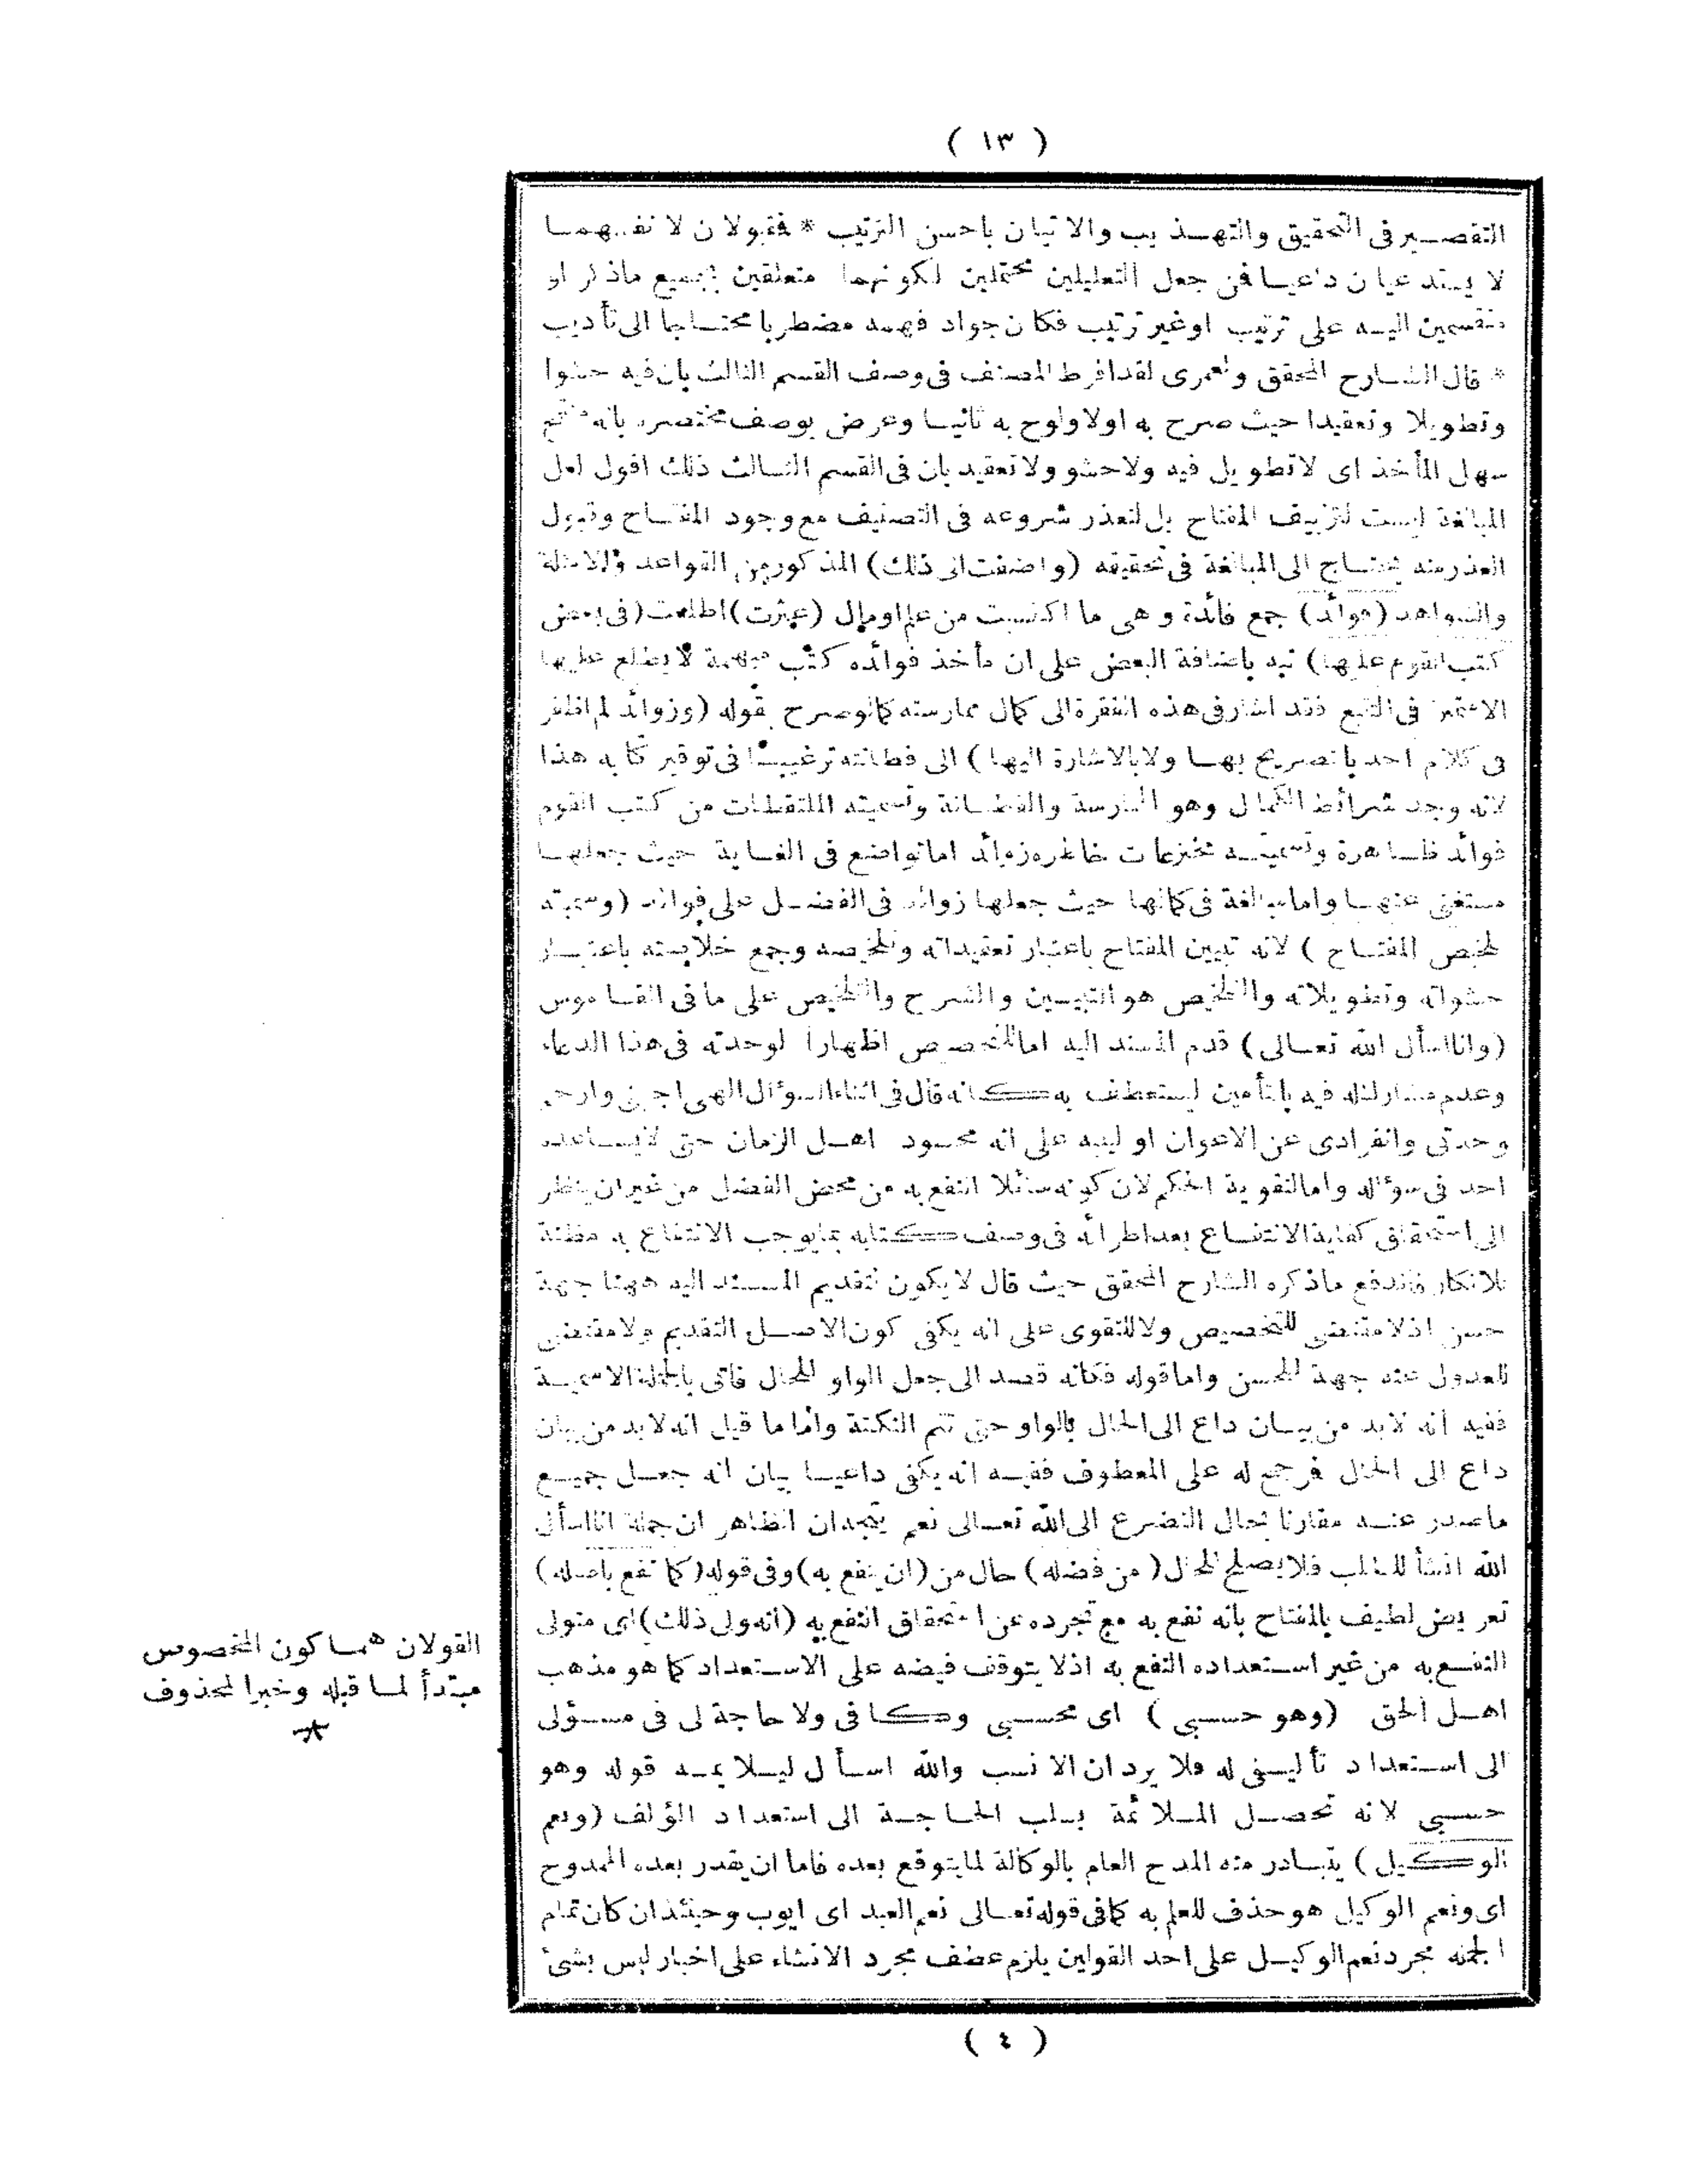 ( ١٣ )
التقصير فى التحقيق والتهذيب والاتيان باحسن الترتيب * فقبولان لا نفسهما
لا يستدعيان داعيا فمن جعل التعليلين محتملين لكونهما متعلقين بجميع ماذكر او
منقسمين اليه على ترتيب اوغير ترتيب فكان جواد فهمه مضطربا محتاجا الى تأديب
* قال الشارح المحقق ولعمرى لقد افرط المصنف فى وصف القسم الثالث بان فيه حشوا
وتطويلا وتعقيدا حيث صرح به اولا ولوح به ثانيا وعرض بوصف مختصره بانه منقح
سهل المأخذ اى لا تطويل فيه ولا حشو ولا تعقيد بان فى القسم الثالث ذلك اقول لعل
المبالغة ليست لتزييف المفتاح بل لتعذر شروعه فى التصنيف مع وجود المفتاح وقبول
العذر منه يحتاج الى المبالغة فى تحقيقه (واضفت الى ذلك) المذكور من القواعد والامثلة
والشواهد (فوائد) جمع فائدة وهى ما اكتسبت من علم اومال (عثرت) اطلعت (فى بعض
كتب القوم عليها) نبه باضافة البعض على ان مأخذ فوائده كتب لا يطلع عليها
الا فى التتبع فقد اشار فى هذه الفقرة الى كمال ممارسته كما لوصرح بقوله (وزوائد لم اظفر
فى كلام احد بالتصريح بها ولا بالاشارة اليها) الى فطانته ترغيبا فى توقير كتابه هذا
لانه وجد شرائط الكمال وهو الممارسة والفطانة وتسميته الملتقطات من كتب القوم
فوائد ظاهرة وتسميته مخترعات خاطره زوائد اما تواضع فى الغاية حيث جعلها
مستغنى عنها واما مبالغة فى كمالها حيث جعلها زوائد فى الفضل على فوائد (وسميته
تلخيص المفتاح) لانه تبيين المفتاح باعتبار تعقيداته وتلخيصه وجمع خلاصته باعتبار
حشواته وتطويلاته والتلخيص هو التبيين والشرح والتلخيص على ما فى القاموس
(وانا اسأل الله تعالى) قدم المسند اليه اما للتخصيص اظهارا لوحدته فى هذا الدعاء
وعدم مشارك له فيه بالتأمين ليستعطف به كانه قال فى اثناء السؤال الهى اجبنى وارحم
وحدتى وانفرادى عن الاعوان او لينبه على انه محسود اهل الزمان حتى لا يساعده
احد فى سؤاله واما لتقوية الحكم لان كونه سائلا النفع به من محض الفضل من غير ان ينظر
الى استحقاق كفاية الانتفاع بعد اطرائه فى وصف كتابه بما يوجب الانتفاع به مظنة
للانكار فاندفع ماذكره الشارح المحقق حيث قال لا يكون لتقديم المسند اليه ههنا جهة
حسن اذ لا مقتضى للتخصيص ولا للتقوى على انه يكفى كون الاصل التقديم ولا مقتضى
للعدول عنه جهة للحسن واما قوله فكانه قصد الى جعل الواو للحال فاتى بالجملة الاسمية
ففيه انه لا بد من بيان داع الى الحال بالواو حتى تتم النكتة واما ما قيل انه لا بد من بيان
داع الى الحال مرجح له على العطوف ففيه انه يكفى داعيا بيان انه جعل جميع
ماصدر عنه مقارنا لحال التضرع الى الله تعالى نعم يتجه ان الظاهر ان جملة انا اسأل
الله انشأ للطلب فلا يصلح للحال (من فضله) حال من (ان ينفع به) وفى قوله (كما نفع باصله)
تعريض لطيف بالمفتاح بانه نفع به مع تجرده عن استحقاق النفع به (انه ولى ذلك) اى متولى
النفع به من غير استعداده النفع به اذ لا يتوقف فيضه على الاستعداد كما هو مذهب
اهل الحق (وهو حسبى) اى محسبى وكافى ولا حاجة لى فى مسؤلى
الى استعداد تأليفى له فلا يرد ان الانسب والله اسأل ليلايمه قوله وهو
حسبى لانه تحصل الملائمة بسلب الحاجة الى استعداد المؤلف (ونعم
الوكيل) يتبادر منه المدح العام بالوكالة لما يتوقع بعده فاما ان يقدر بعده الممدوح
اى ونعم الوكيل هو حذف للعلم به كما فى قوله تعالى نعم العبد اى ايوب وحينئذ ان كان تمام
الجملة مجرد نعم الوكيل على احد القولين يلزم عطف مجرد الانشاء على اخبار ليس بشئ
( ٤ )
القولان هما كون المخصوص
مبتدأ لما قبله وخبرا لمحذوف
*